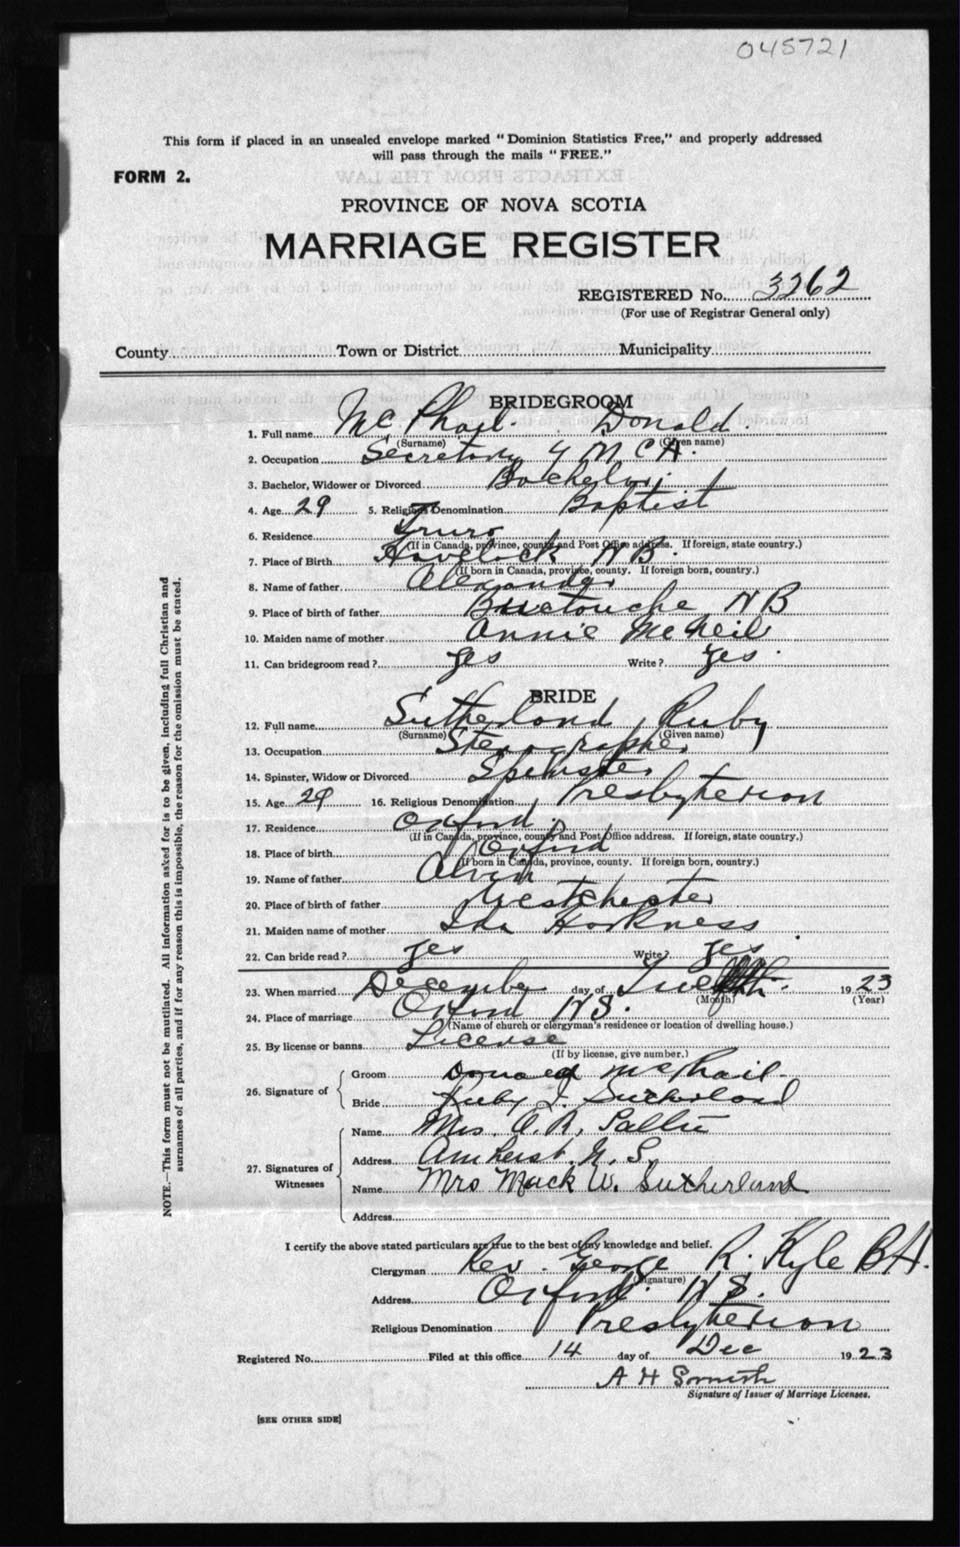 045721
This form if placed in an unsealed envelope marked "Dominion Statistics Free," and properly addressed
will pass through the mails "FREE."
FORM 2.
PROVINCE OF NOVA SCOTIA
MARRIAGE REGISTER
REGISTERED No. 3262
(For use of Registrar General only)
County Town or District Municipality
BRIDEGROOM
1. Full name Mc Phail. Donald.
(Surname) (Given name)
2. Occupation Secretary Y M C A.
3. Bachelor, Widower or Divorced Bachelor
4. Age 29 5. Religious Denomination Baptist
6. Residence Truro
(If in Canada, province, county and Post Office address. If foreign, state country.)
7. Place of Birth Havelock N B.
(If born in Canada, province, county. If foreign born, country.)
8. Name of father Alexander
9. Place of birth of father Buctouche N B
10. Maiden name of mother Annie McNeil
11. Can bridegroom read? Yes Write? Yes.
BRIDE
12. Full name Sutherland Ruby
(Surname) (Given name)
13. Occupation Stenographer
14. Spinster, Widow or Divorced Spinster
15. Age 29 16. Religious Denomination Presbyterian
17. Residence Oxford
(If in Canada, province, county and Post Office address. If foreign, state country.)
18. Place of birth Oxford
(If born in Canada, province, county. If foreign born, country.)
19. Name of father Alvin
20. Place of birth of father Westchester
21. Maiden name of mother Ida Harkness
22. Can bride read? Yes Write? Yes
23. When married December day of 1923
(Month) (Year)
24. Place of marriage Oxford N S.
(Name of church or clergyman's residence or location of dwelling house.)
25. By license or banns License
(If by license, give number.)
26. Signature of
Groom Donald McPhail.
Bride Ruby I. Sutherland
27. Signatures of Witnesses
Name Mrs. A. R.
Address Amherst. N. S.
Name Mrs Mack W. Sutherland
Address
I certify the above stated particulars are true to the best of my knowledge and belief.
Clergyman Rev. George R. Kyle
(Signature)
Address Oxford. N S.
Religious Denomination Presbyterian
Registered No. Filed at this office 14 day of Dec 1923
A H Smith
Signature of Issuer of Marriage Licenses.
[SEE OTHER SIDE]
NOTE.—This form must not be mutilated. All information asked for is to be given, including full Christian and
surnames of all parties, and if for any reason this is impossible, the reason for the omission must be stated.